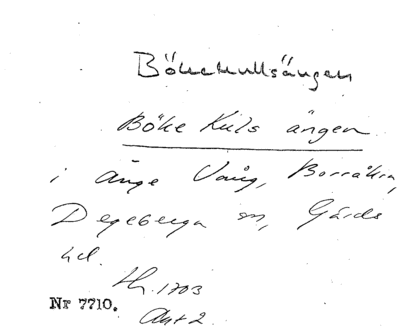 Bökekullsängen
Böke Kuls ängen
i änge Vång, Borråkra,
Degeberga sn, Gärds
hd.
Hr. 1703
Nr 7710.
Akt 2